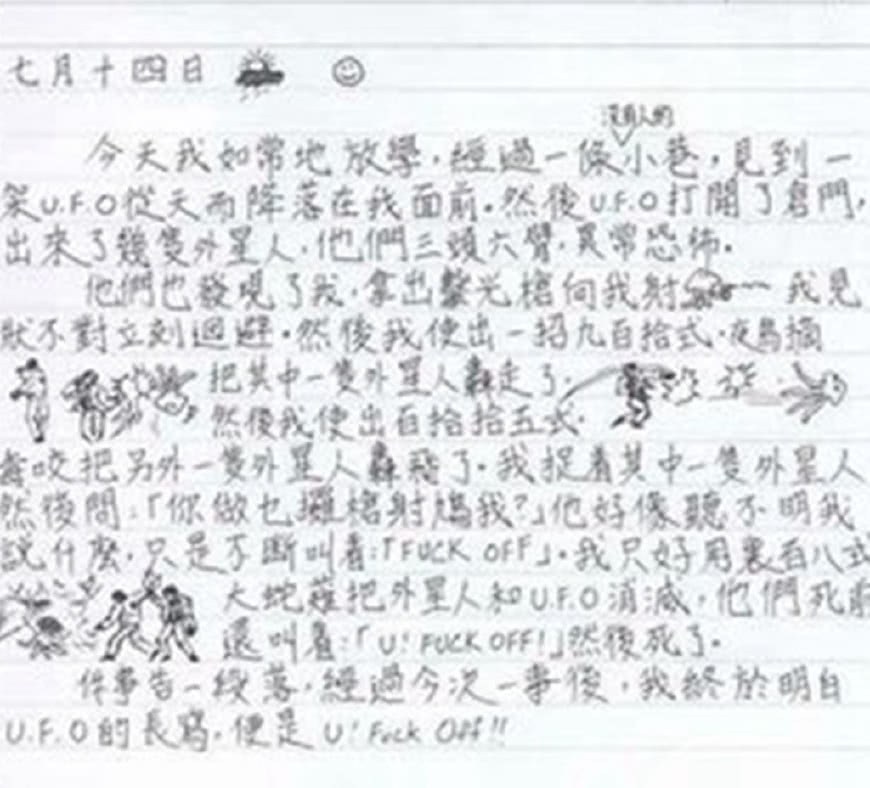 七月十四日
沒有人的
今天我如常地放學，經過一條小巷，見到一
架U.F.O從天而降落在我面前。然後U.F.O打開了倉門，
出來了幾隻外星人，他們三頭六臂，異常恐怖。
他們也發現了我，拿出擊光槍向我射 我見
狀不對立刻迴避。然後我使出一招九百拾式·
把其中一隻外星人轟走了，
然後我使出百拾拾五式·
咬把另外一隻外星人轟飛了。我捉着其中一隻外星人
然後問：「你做乜攞槍射鳩我？」他好像聽不明我
說什麼，只是不斷叫着：「FUCK OFF」。我只好用裏百八式
大蛇薙把外星人和U.F.O消滅，他們死前
還叫着：「U! FUCK OFF!」然後死了。
件事告一段落，經過今次一事後，我終於明白
U.F.O的長寫，便是U! Fuck Off!!